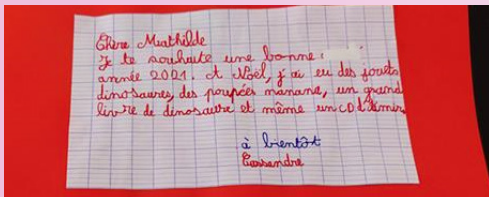 Chère Mathilde
Je te souhaite une bonne
année 2021. A Noël, j'ai eu des jouets
dinosaures, des poupées manana, un grand
livre de dinosaure et même un CD
à bientôt
Cassandre